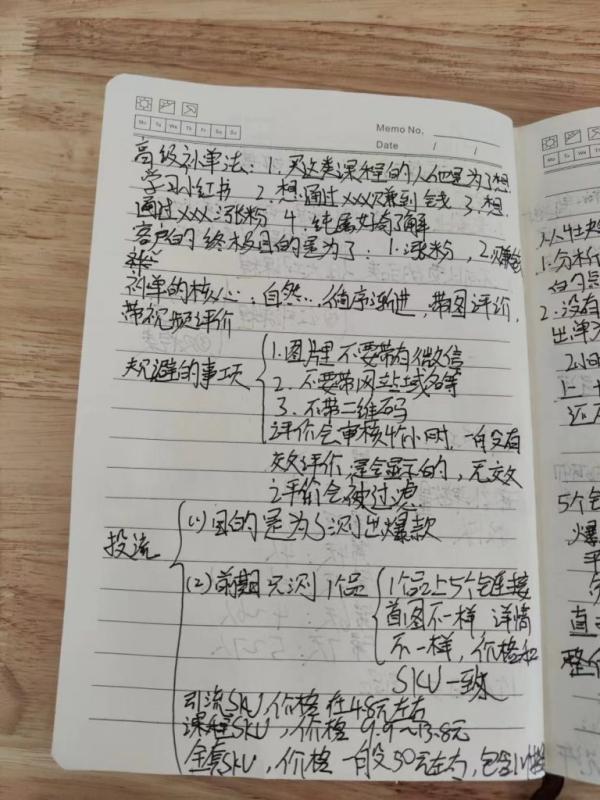 Mo Tu We Th Fr Sa Su
Memo No.
Date / /
高级补单法：1.买这类课程的人他是为了想
学习小红书 2.想通过xxx赚到钱 3.想
通过xxx涨粉 4.纯属好奇了解
客户的终极目的是为了：1.涨粉，2.赚钱
补单的核心：自然…循序渐进，带图评价，
带视频评价
规避的事项
1.图片里不要带有微信
2.不要带网站域名等
3.不带二维码
评价会审核4个小时，一般没有
效评价是会显示的，无效
评价会被过滤
投流
(1)目的是为了测出爆款
(2)前期只测1个品
1个品上5个链接
首图不一样 详情
不一样，价格和
SKU一致
引流SKU，价格在4.8元左右
课程SKU，价格9.9~13.8元
全套SKU，价格一般30元左右，包含1V1
从
1.分析
的
2.没有
出单
2小
上
还
5个
爆
直
整个